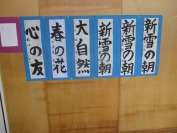 新雪の朝
新雪の朝
新雪の朝
大自然
春の花
心の友